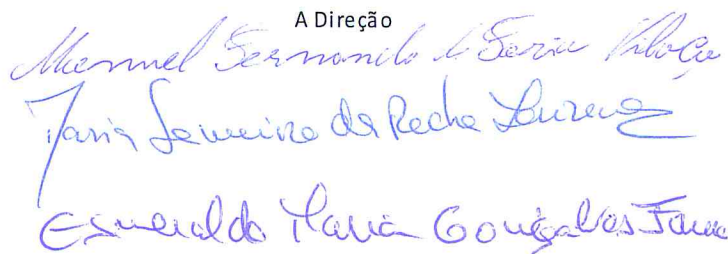 A Direção
Manuel Fernando de Faria
Maria da Rocha Lourenço
Esmeralda Maria Gonçalves Faria